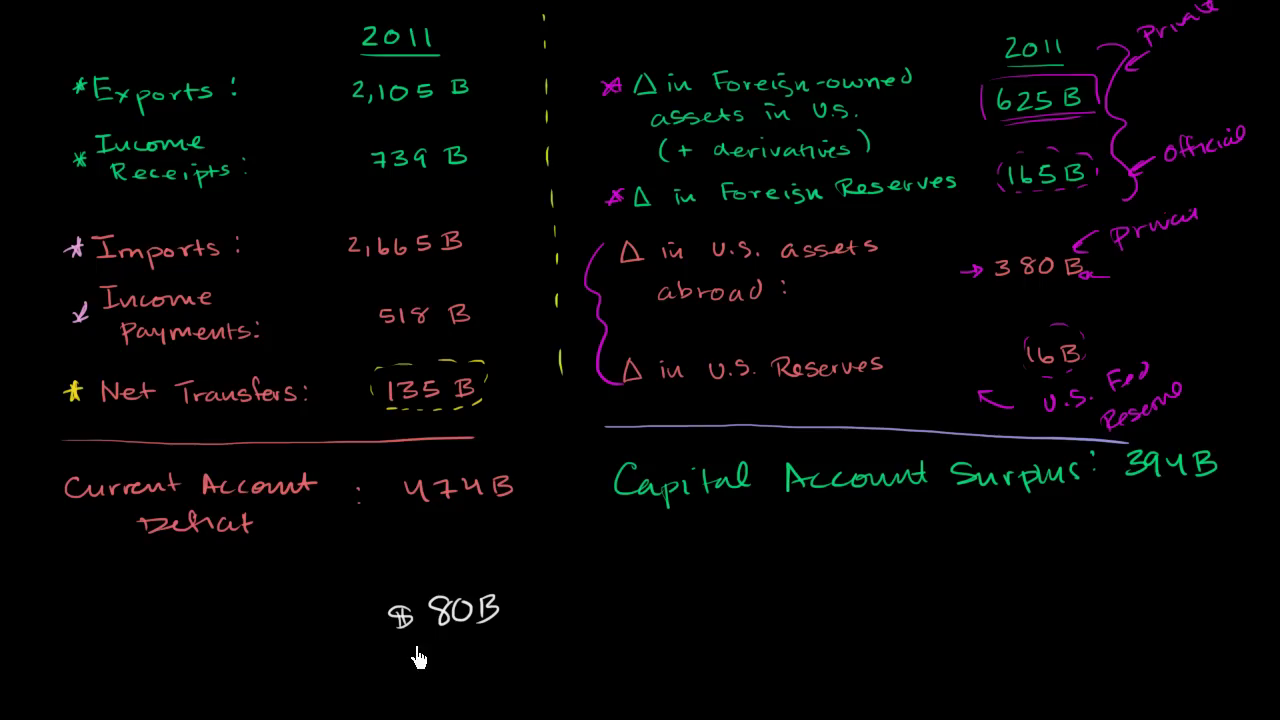 2011
* Exports : 2,105 B
* Income
Receipts : 739 B
* Imports : 2,665 B
* Income
Payments: 518 B
* Net Transfers: 135 B
Current Account : 474B
Deficit
$ 80B
2011
Private
* Δ in Foreign-owned
assets in U.S. 625 B
(+ derivatives)
Official
* Δ in Foreign Reserves 165 B
Private
Δ in U.S. assets
abroad : → 380 B
Δ in U.S. Reserves 16 B
U.S. Fed
Reserve
Capital Account Surplus: 394B